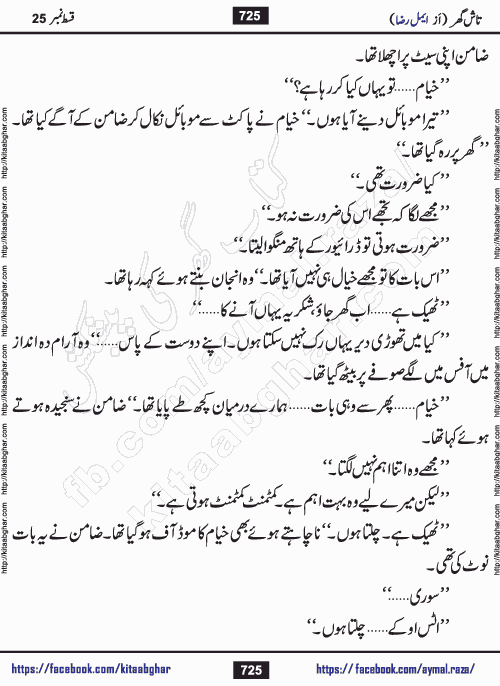 تاش گھر (از ایمل رضا) 725 قسط نمبر 25
ضامن اپنی سیٹ پر اچھلا تھا۔
’’خیام...... تو یہاں کیا کر رہا ہے؟‘‘
’’تیرا موبائل دینے آیا ہوں۔‘‘ خیام نے پاکٹ سے موبائل نکال کر ضامن کے آگے کیا تھا۔
’’گھر پر رہ گیا تھا۔‘‘
’’کیا ضرورت تھی۔‘‘
’’مجھے لگا کہ تجھے اس کی ضرورت نہ ہو۔‘‘
’’ضرورت ہوتی تو ڈرائیور کے ہاتھ منگوا لیتا۔‘‘
’’اس بات کا تو مجھے خیال ہی نہیں آیا تھا۔‘‘ وہ انجان بنتے ہوئے کہہ رہا تھا۔
’’ٹھیک ہے...... اب گھر جاؤ، شکریہ یہاں آنے کا......‘‘
’’کیا میں تھوڑی دیر یہاں رک نہیں سکتا ہوں۔ اپنے دوست کے پاس......‘‘ وہ آرام دہ انداز
میں آفس میں لگے صوفے پر بیٹھ گیا تھا۔
’’خیام...... پھر سے وہی بات...... ہمارے درمیان کچھ طے پایا تھا۔‘‘ ضامن نے سنجیدہ ہوتے
ہوئے کہا تھا۔
’’مجھے وہ اتنا اہم نہیں لگتا۔‘‘
’’لیکن میرے لیے وہ بہت اہم ہے۔ کمٹمنٹ کمٹمنٹ ہوتی ہے۔‘‘
’’ٹھیک ہے۔ چلتا ہوں۔‘‘ نا چاہتے ہوئے بھی خیام کا موڈ آف ہو گیا تھا۔ ضامن نے یہ بات
نوٹ کی تھی۔
’’سوری......‘‘
’’اٹس اوکے...... چلتا ہوں۔‘‘
https://facebook.com/kitaabghar 725 https://facebook.com/aymal.raza/
http://kitaabghar.com http://kitaabghar.com http://kitaabghar.com http://kitaabghar.com http://kitaabghar.com
http://kitaabghar.com http://kitaabghar.com http://kitaabghar.com http://kitaabghar.com http://kitaabghar.com
کتاب گھر کی پیشکش
fb.com/aymal.raza/
kitaabghar.com